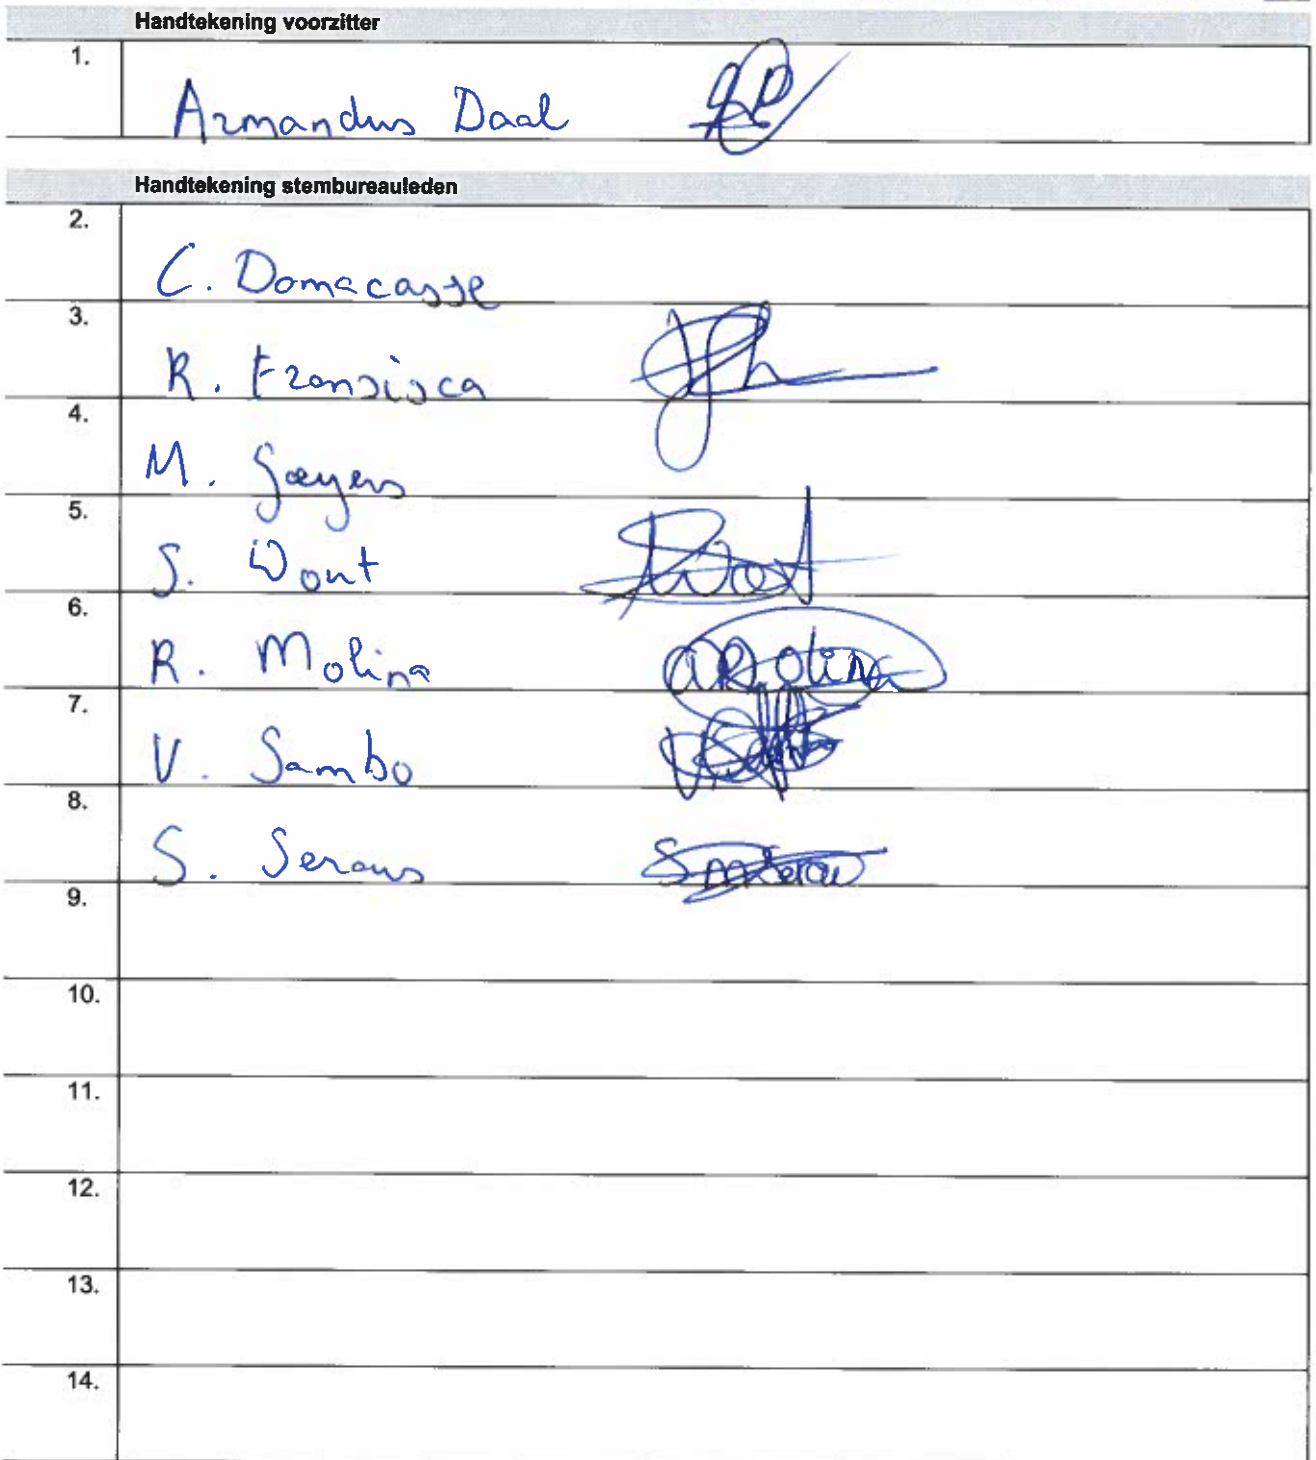 Handtekening voorzitter
1.
Armandus Daal
Handtekening stembureauleden
2.
C. Domacasse
3.
R. Fransisca
4.
M. Goeyers
5.
S. Wout
6.
R. Molina
7.
V. Sambo
8.
S. Seraus
9.
10.
11.
12.
13.
14.